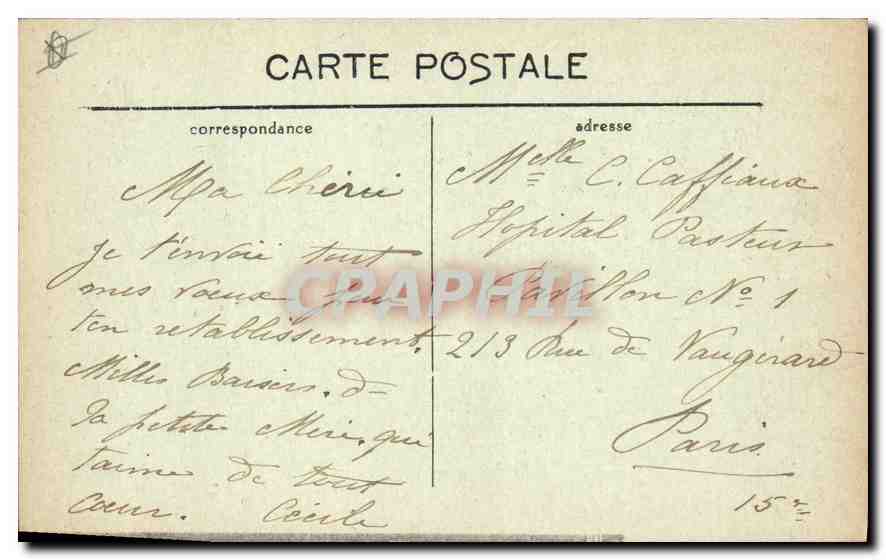 CARTE POSTALE
correspondance
Ma Chérie
Je t'envoie tout
mes vœux pour
ton rétablissement.
Milles Baisers. d
ta petite Mère. qui
taime de tout
cœur. Cécile
adresse
Melle C. Caffiaux
Hopital Pasteur
Pavillon No 1
213 Rue de Vaugirard
Paris
15e
CPAPHIL